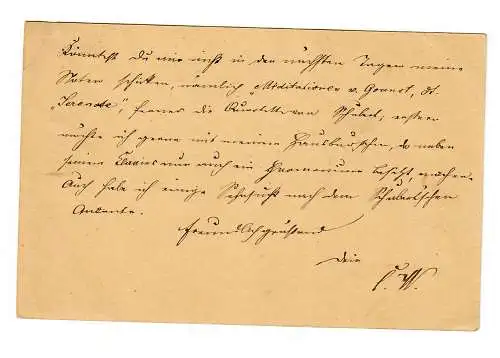 Könntest Du mir nicht in den nächsten Tagen meine
Noten schicken, nämlich Méditationen v. Gounot, dt.
"Serenade", ferner die Quartette von Schubert; erstere
möchte ich gerne mit meinem Hausburschen, der neben
seinem Clavier nun auch ein Harmonium besitzt, machen.
Auch habe ich einige Sehnsucht nach dem Schubert'schen
Andante.
Freundlich grüssend
Dein
C. W.